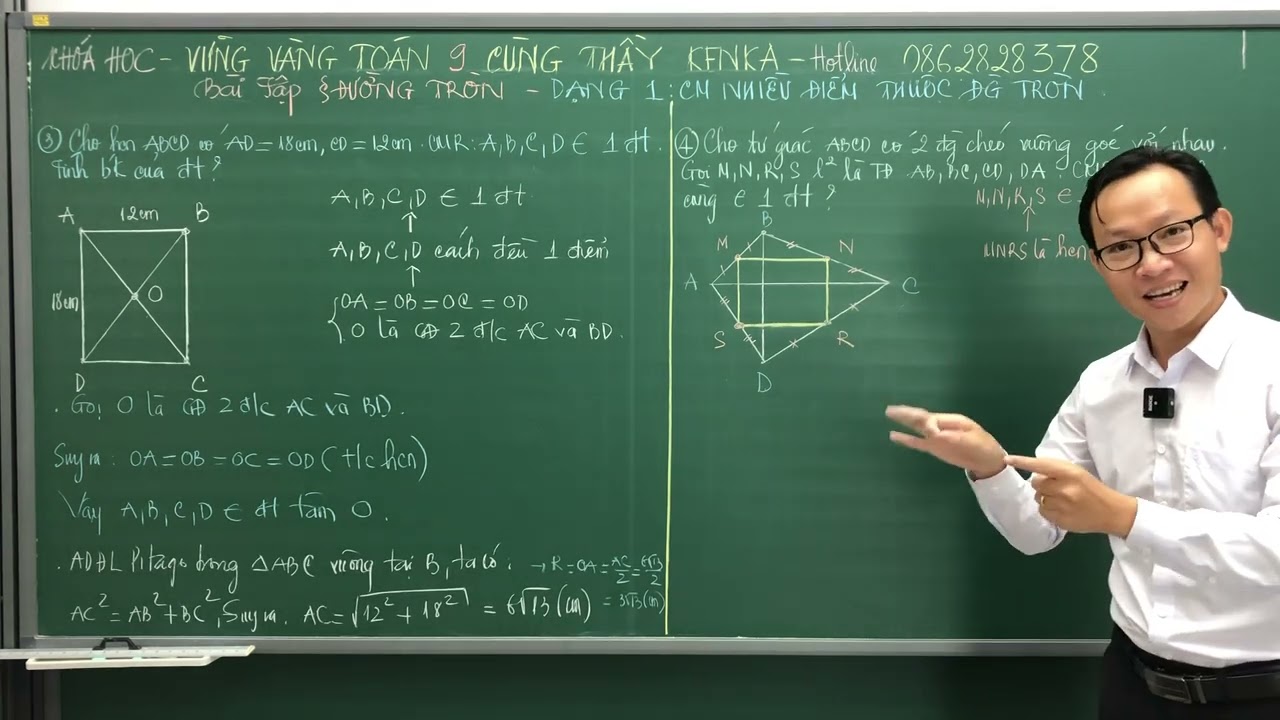 KHÓA HỌC - VỮNG VÀNG TOÁN 9 CÙNG THẦY KENKA - Hotline 0862828378
Bài Tập § ĐƯỜNG TRÒN - DẠNG 1: CM NHIỀU ĐIỂM THUỘC ĐG TRÒN.
③ Cho hcn ABCD có AD = 18cm, CD = 12cm. CMR: A, B, C, D ∈ 1 đt.
Tính bk của đt?
A, B, C, D ∈ 1 đt
↑
A, B, C, D cách đều 1 điểm
↑
{ OA = OB = OC = OD
O là GĐ 2 đ/c AC và BD.
A 12cm B
18cm O
D C
. Gọi O là GĐ 2 đ/c AC và BD.
Suy ra: OA = OB = OC = OD (t/c hcn)
Vậy A, B, C, D ∈ đt tâm O.
. ADĐL Pitago trong △ABC vuông tại B, ta có: → R = OA = AC/2 = 6√13/2
AC² = AB² + BC², Suy ra. AC = √12² + 18² = 6√13 (cm) = 3√13 (cm)
④ Cho tứ giác ABCD có 2 đg chéo vuông góc với nhau.
Gọi M, N, R, S l² là TĐ AB, BC, CD, DA.
cùng ∈ 1 đt?
M, N, R, S ∈
↑
MNRS là hcn
B
M N
A C
S R
D